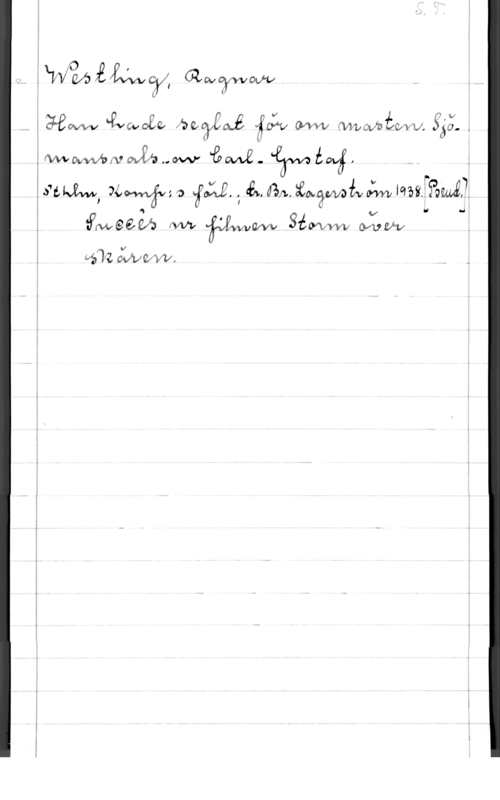 S. T.
Westling, Ragnar
Han hade seglat för om masten. Sjö-
mansvals..av Carl-Gustaf.
Sthlm, Komp:s förl.; tr. Br. Lagerström 1938. [Pseud.]
Succès ur filmen Storm över
skären.